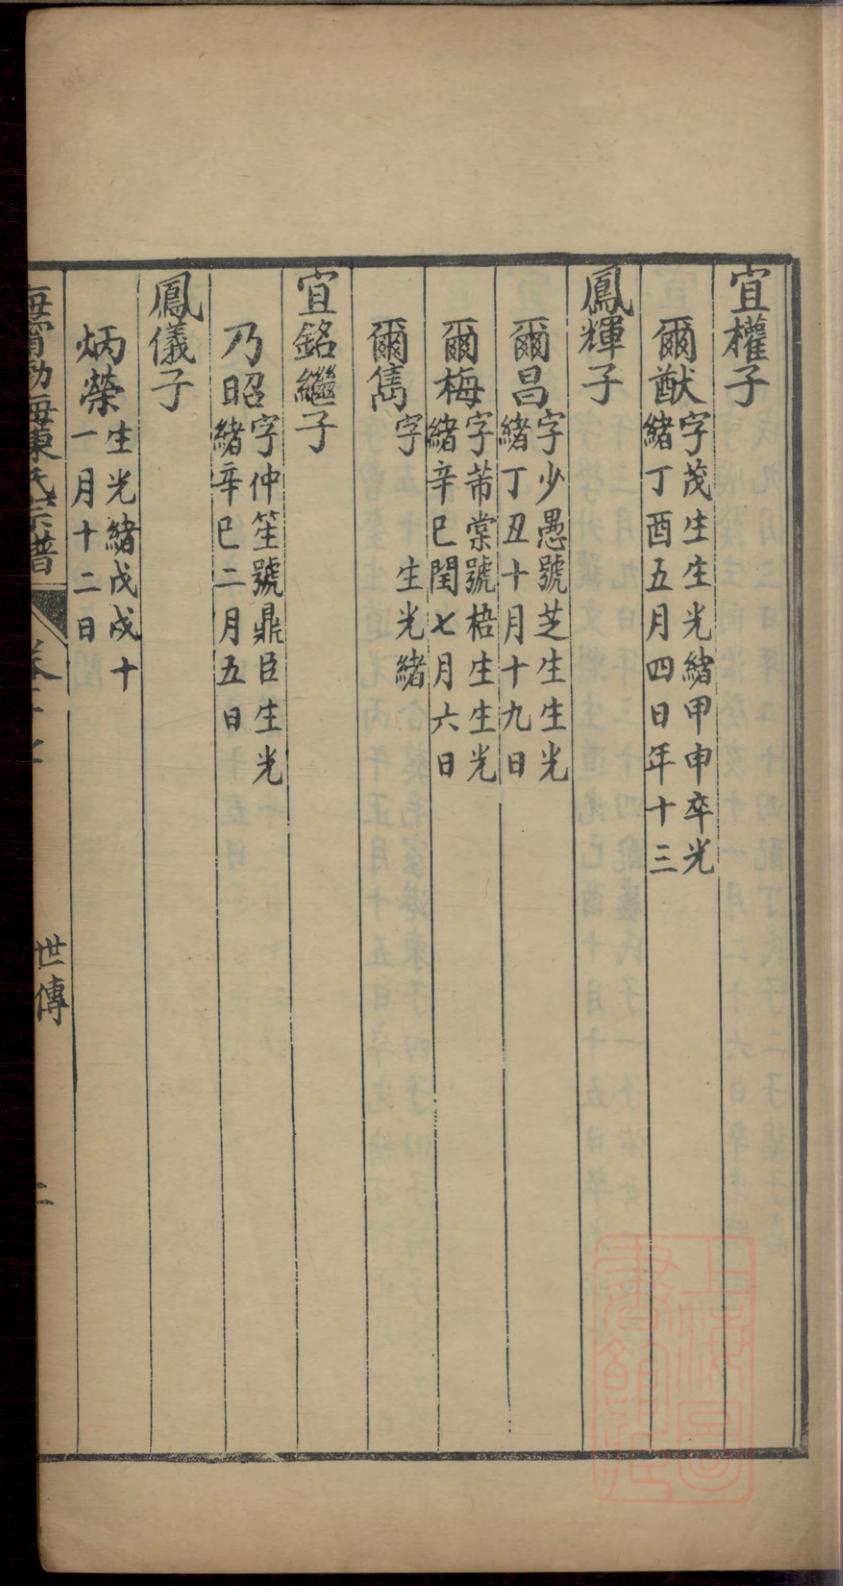 宜權子
爾猷
字茂生生光緒甲申卒光
緒丁酉五月四日年十三
鳳輝子
爾昌
字少愚號芝生生光
緒丁丑十月十九日
爾梅
字芾棠號梧生生光
緒辛巳閏七月六日
爾雋
字 生光緒
宜銘繼子
乃昭
字仲笙號鼎臣生光
緒辛巳二月五日
鳳儀子
炳榮
生光緒戊戌十
一月十二日
海甯勃海陳氏宗譜
世傳
二
上海圖書館藏